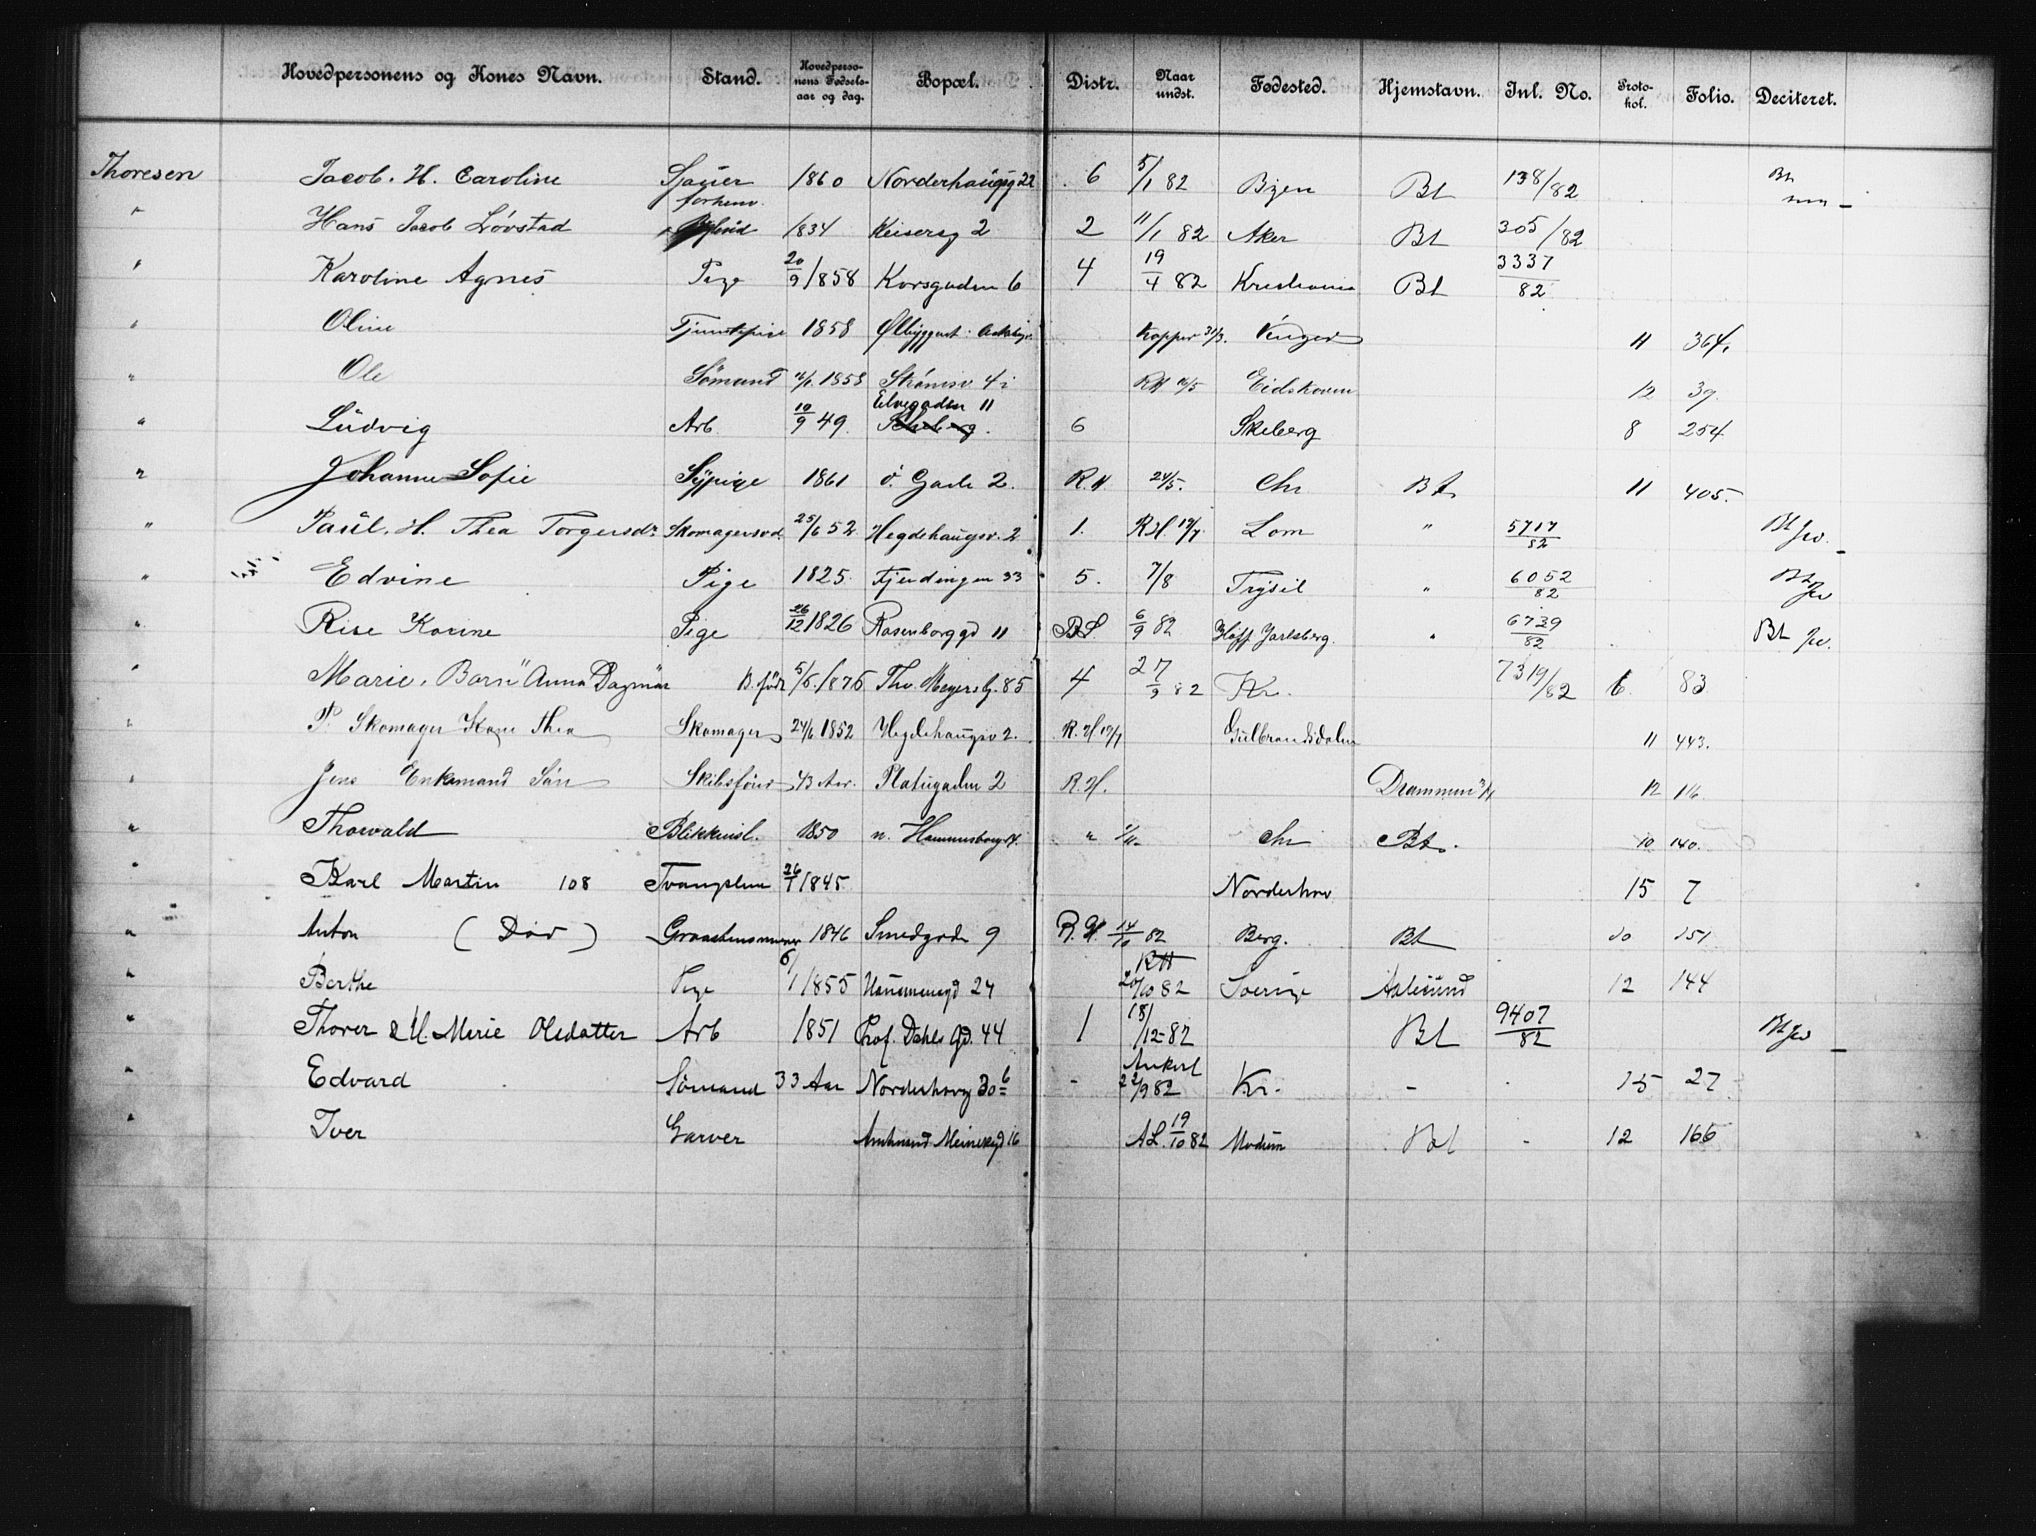 Hovedpersonens og Kones Navn. Stand. Hovedpersonens Fødselsaar og dag. Bopæl. Distr. Naar undst. Fødested. Hjemstavn. Inl. No. Protokol. Folio. Deciteret.
Thoresen Jacob. H. Caroline Sjauer 1860 Norderhaugsg 22 6 5/1 82 Bt 138/82 Bt
" Hans Jacob Løvstad forhenv. 1834 Keisersg 2 2 11/1 82 Aker Bt 305/82
" Karoline Agnes Pige 20/9 1858 Korsgaden 6 4 19/4 82 Kristiania Bt 3337/82
" Oline Tjenstepige 1858 Kopper 31/3. 11 364.
" Ole Sømand 1858 4 RH 16/5 Eidskoven 12 39.
" Ludvig Arb. 10/9 49. Elvegaden 11 6 Skeberg 8 254
" Johanne Sofie Sÿpige 1861 ö. Gade 2. R.H 24/5. Chr Bt 11 405.
" Paul. H. Thea Torgersdr Skomagersvd 25/6 52 Hegdehaugsv. 2 1. RH. 17/7 Lom " 5717/82 Bt Jev.
" Edvine Pige 1825. Fjerdingen 33 5. 7/8 Trysil " 6052/82 Bt Jev
" Rise Karine Pige 26/12 1826 Rosenborggd 11 BS 6/9 82 Hoff Jarlsberg. " 6739/82 Bt Jev.
" Marie, Barn "Anna Dagmar" B. født 5/6. 1876 Thv. Meyersg. 85 4 27/9 82 Kr. 7319/82 6. 83
" P. Skomager Kone Thea Skomager 24/6 1852 Hegdehaugsv 2. R.H 17/7 Gulbrandsdalen 11 443.
" Jens Enkemand Sön Skibsförer 43 Aar. Platugaden 2 R.H. Drammen 12 116.
" Thorvald Blikkensl. 1850 n. Hammersborg " Chr Bt. 10 140.
" Karl Martin 108 Tvangslem 26/1 1845 Norderhov 15 7
" Anton (Döv) Graastensminer 1846 Smedgade 9 R.H. 14/10 82 Berg. Bt 10 151
" Berthe Pige 6/1 1855 24 RH 20/10 82 Sverige Aalesund 12 144
" Thorer & H. Merie Olsdatter Arb 1851 Prof. Dahls Gd. 44 1 18/12-82 Bt 9407/82 Bt Jev
" Edvard Sömand 33 Aar Norderhovg 30 b - Ankerl 22/9 82 Kr. - 15 27
" Iver Garver Amtmand Meinekegd 16 AL. 19/10 82 Modum Bt - 12 166